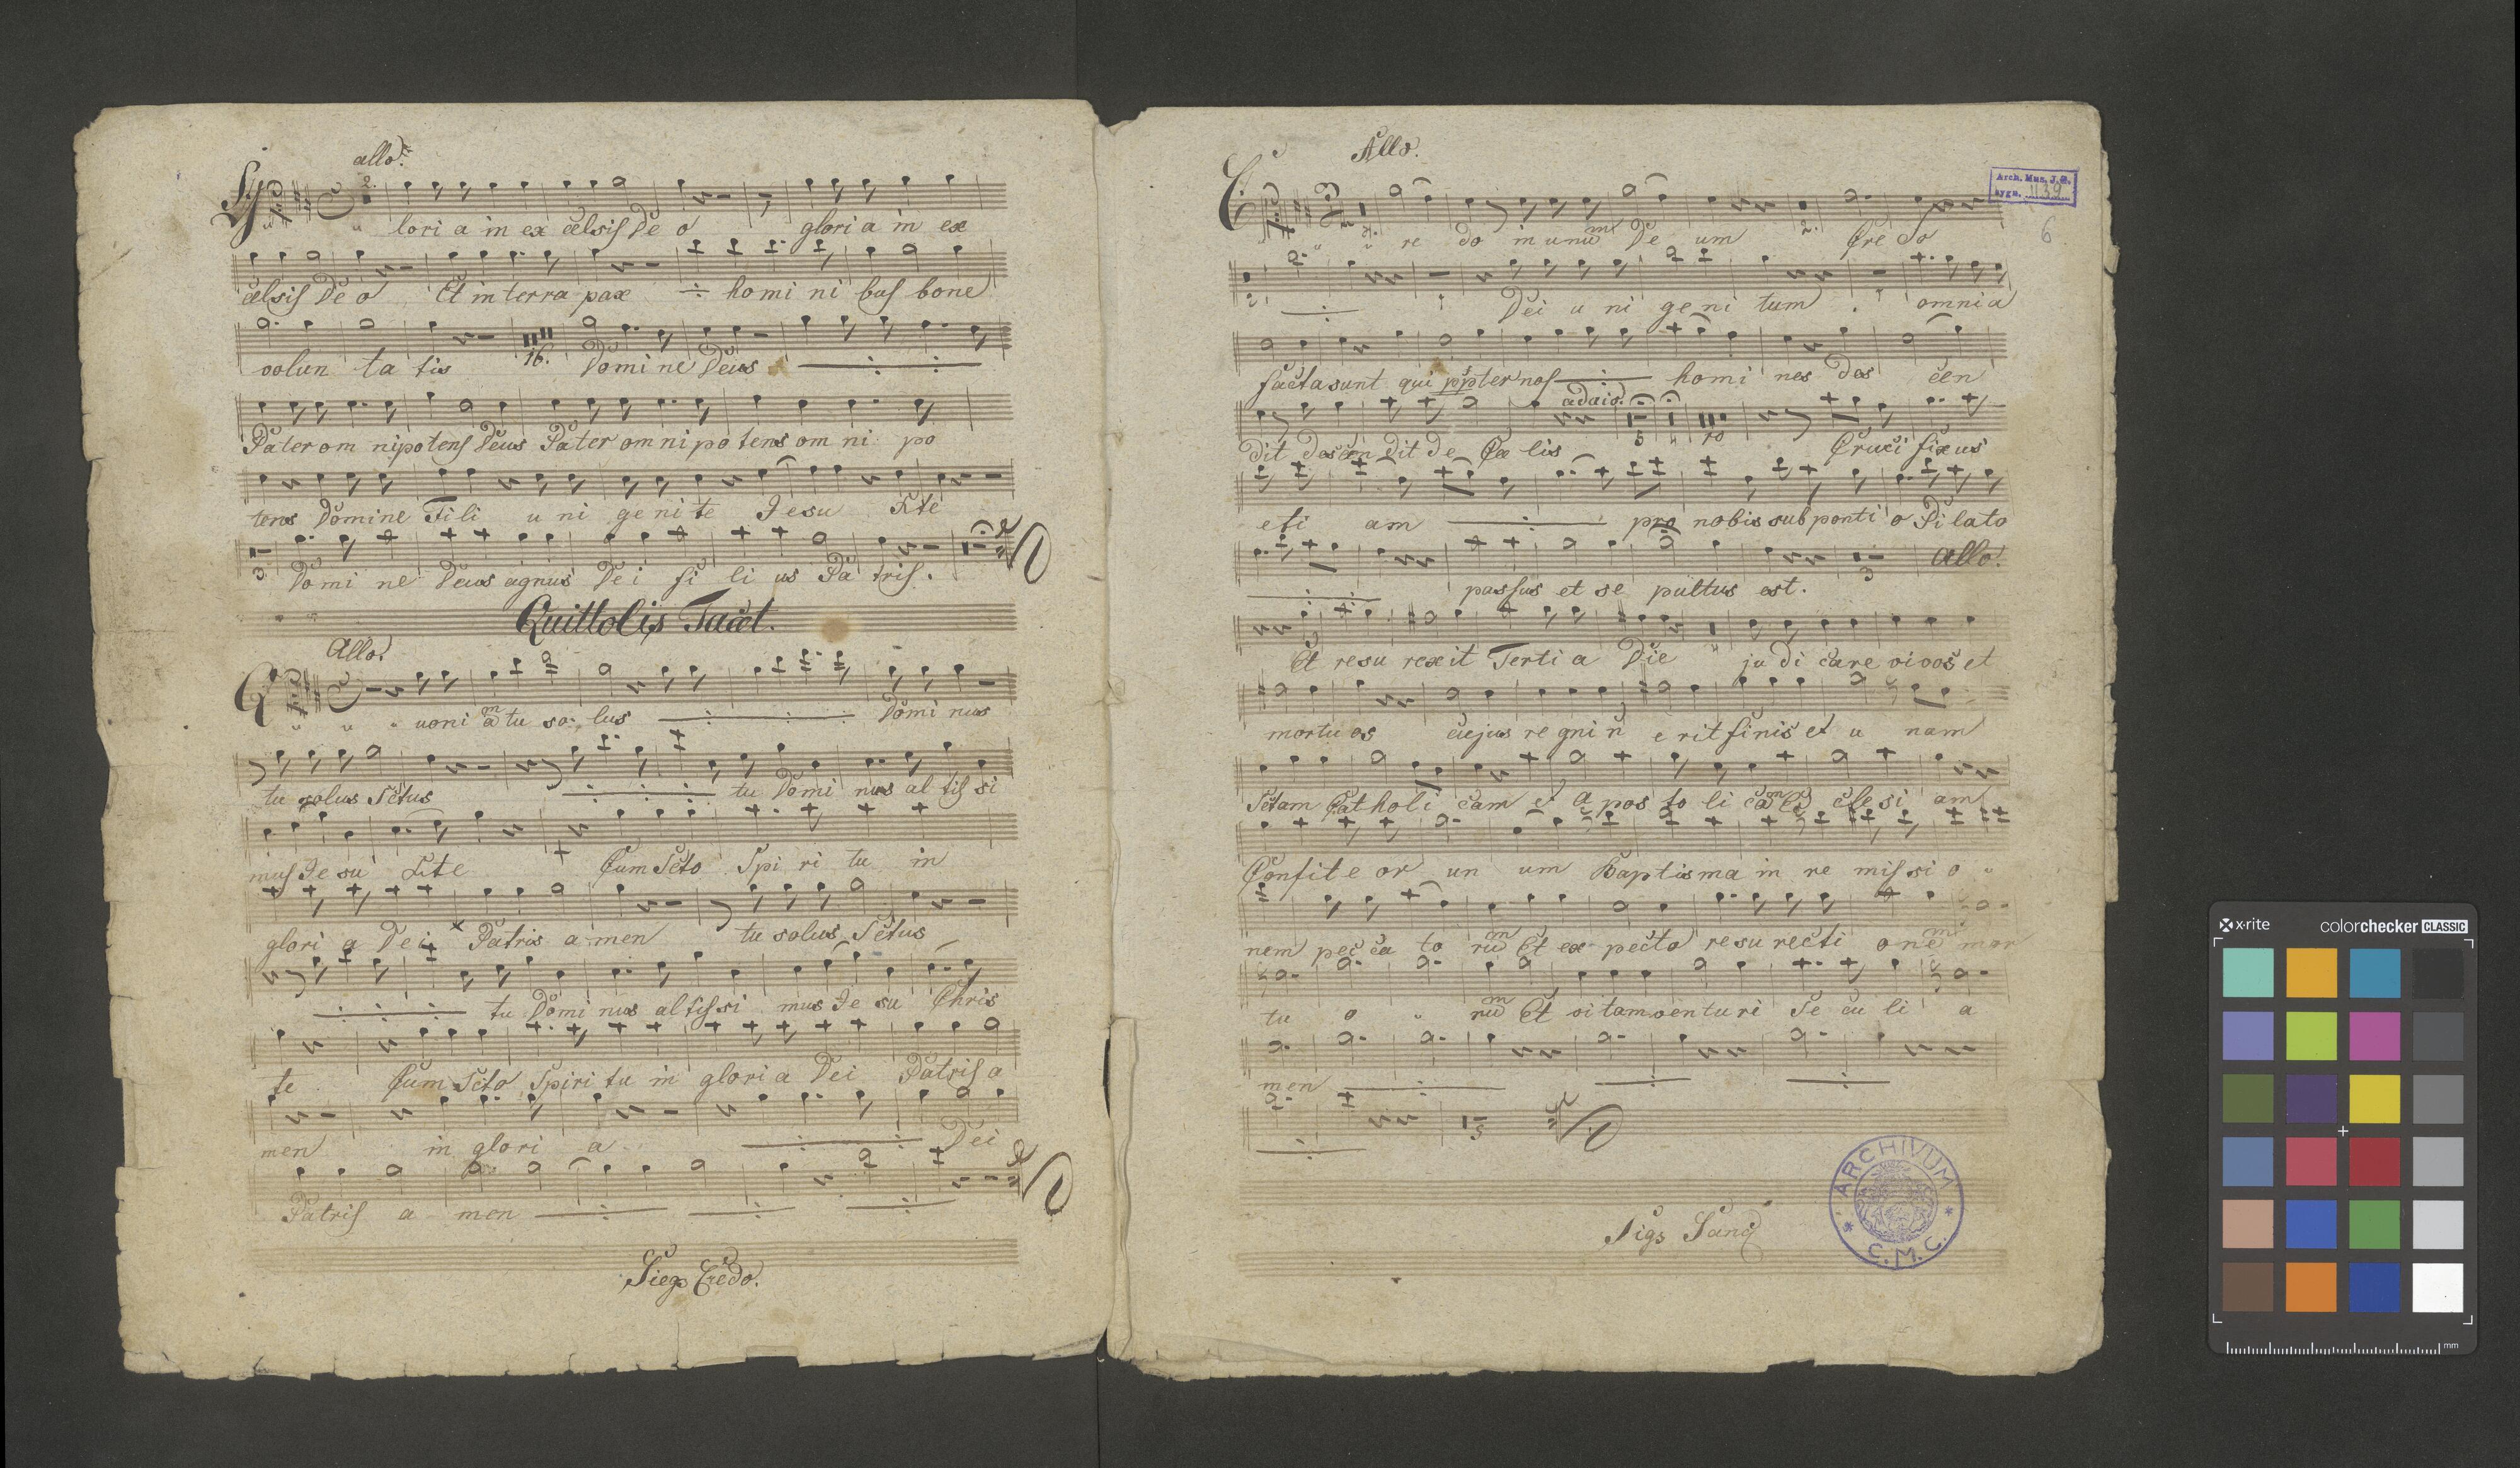 allo.
2.
Gloria in ex celsis Deo gloria in ex
celsis Deo Et in terra pax homini bus bone
16.
volun ta tis Domine Deus
Pater om nipotens Deus Pater omnipotens om ni po
tens Domine Fili u ni genite Jesu Xte
3
Domine Deus agnus Dei fi li us Patris.
Quittolis Tacet.
Allo.
Quoni am tu so lus Dominus
tu solus Sctus tu Domi nus al tis si
mus Je su Xte Cum Scto Spi ri tu in
glori a Dei Patris a men tu solus Sctus
tu Domi nus altissi mus Je su Chris
te Cum Scto Spiri tu in gloria Dei Patris a
men in glori a Dei
Patris a men
Siegs Credo.
Allo.
Arch. Mus. J. G.
sygn. 1139
6
2.
Cre do in unum De um Cre do
Dei u ni ge ni tum omnia
facta sunt qui ppter nos homi nes des cen
adaio.
5 10
dit descen dit de Cae lis Cruci fixus
eti am pro nobis sub ponti o Pi lato
3 Allo.
passus et se pultus est.
Et resu rexit Terti a Die ju di care vivos et
mortu os cujus re gni n erit finis et u nam
Sctam Cat holi cam et A pos to li cam Ec clesi am
Confite or un um Baptisma in re missi o
nem pec ca to rum Et ex pecto resu recti onem mor
tu o rum Et vitam venturi Se cu li a
men
5
Sigs Sanc
ARCHIVUM
* C.M.C. *
x-rite colorchecker CLASSIC
mm